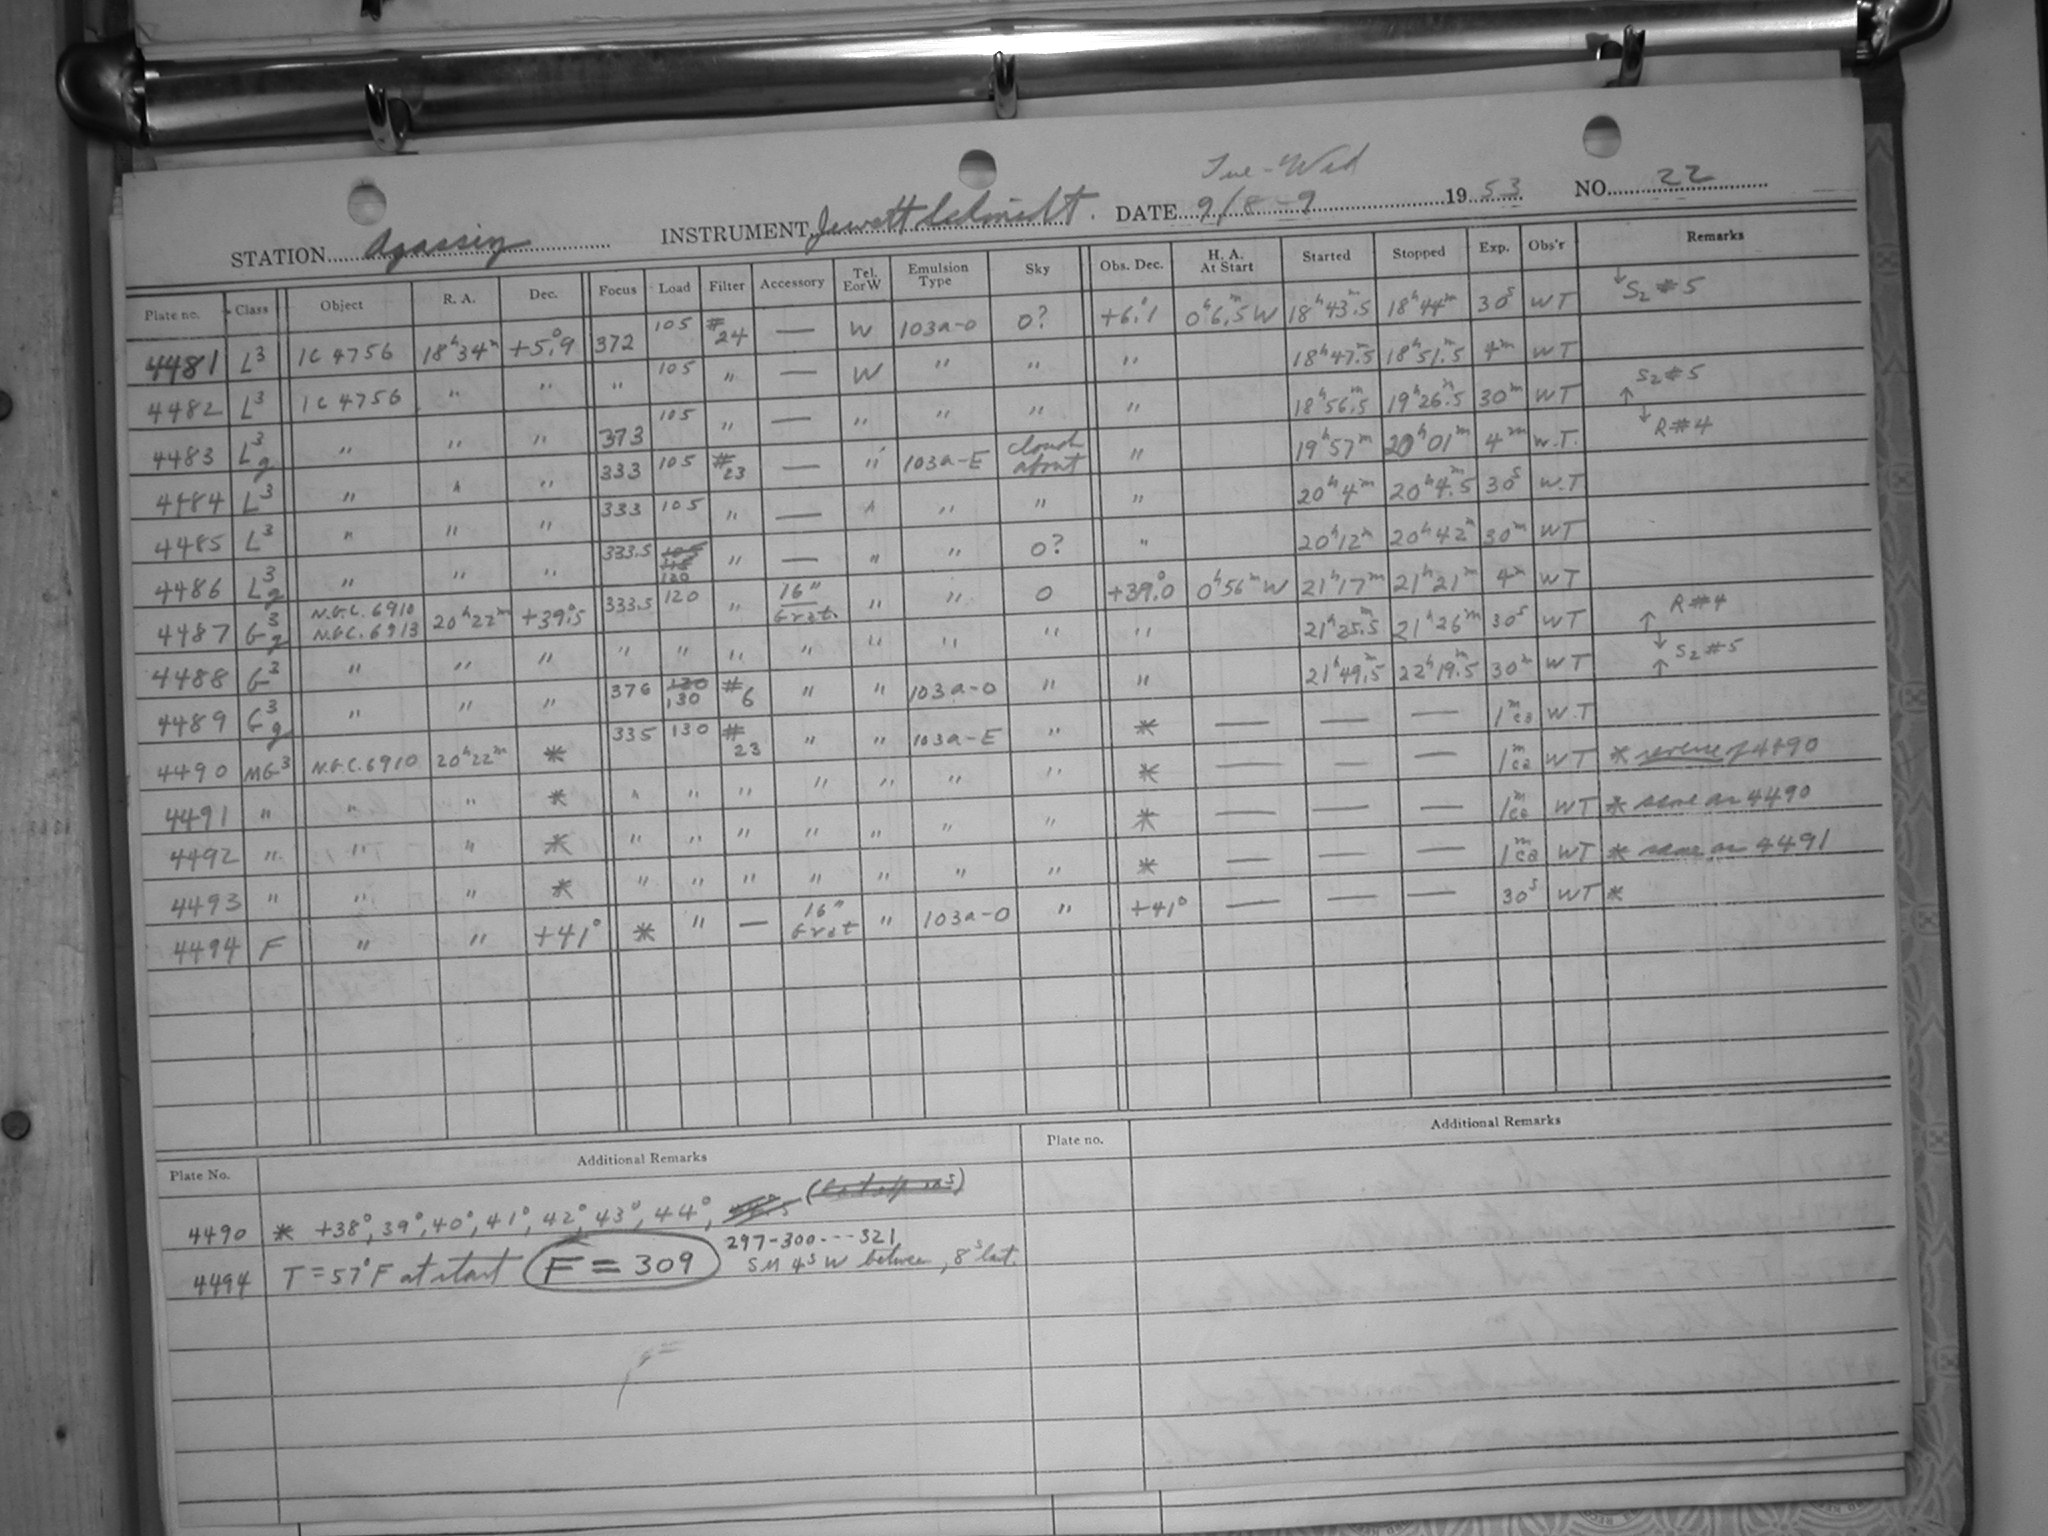 Tue-Wed
STATION Agassiz INSTRUMENT Jewett Schmidt. DATE 9/8-9 1953 NO. 22
Plate no. Class Object R. A. Dec. Focus Load Filter Accessory Tel. E or W Emulsion Type Sky Obs. Dec. H. A. At Start Started Stopped Exp. Obs'r Remarks
4481 L3 IC 4756 18h34m +5°.9 372 105 #24 — W 103a-O 0? +6°.1 0h6m.5W 18h43m.5 18h44m 30s WT ↓S2 #5
4482 L3 IC 4756 " " " 105 " — W " " " 18h47m.5 18h51m.5 4m WT
4483 L3g " " " 373 105 " — " " " " 18h56m.5 19h26m.5 30m WT ↑ S2 #5
4484 L3 " " " 333 105 #23 — " 103a-E clouds about " 19h57m 20h01m 4m W.T. ↓ R#4
4485 L3 " " " 333 105 " — " " " " 20h4m 20h4m.5 30s W.T
4486 L3g " " " 333.5 120 " — " " 0? " 20h12m 20h42m 30m WT
4487 G3g N.G.C. 6910 N.G.C. 6913 20h22m +39°.5 333.5 120 " 16" Grat. " " 0 +39°.0 0h56mW 21h17m 21h21m 4m WT
4488 G3 " " " " " " " " " " " 21h25m.5 21h26m 30s WT ↑ R#4
4489 G3g " " " 376 130 #6 " " 103a-O " " 21h49m.5 22h19m.5 30m WT ↓ ↑ S2 #5
4490 MG3 N.G.C. 6910 20h22m * 335 130 #23 " " 103a-E " * — — — 1m ea W.T
4491 " " " * " " " " " " " * — — — 1m ea WT * reverse of 4490
4492 " " " * " " " " " " " * — — — 1m ea WT * same as 4490
4493 " " " * " " " " " " " * — — — 1m ea WT * same as 4491
4494 F " " +41° * " — 16" Grat " 103a-O " +41° — — — 30s WT *
Plate No. Additional Remarks Plate no. Additional Remarks
4490 * +38°, 39°, 40°, 41°, 42°, 43°, 44°,
4494 T = 57°F at start F = 309 297-300---321
5M 4s W between, 8s last.